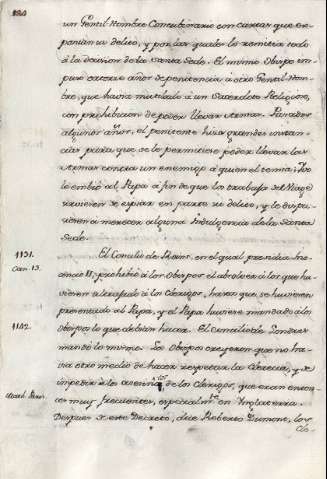 un Gentil Hombre Concubinario con cartas que ex-
ponian su delito, y por las quales lo remitia todo
à la decision de la Santa Sede. El mismo Obispo im-
puso catorce años de penitencia à otro Gentil Hom-
bre, que havia mutilado à un Sacerdote Religioso,
con prohibicion de poder llevar Armas. Pasados
algunos años, el penitente hizo grandes instan-
cias para que se le permitiese poder llevar las
Armas contra un enemigo à quien el temia: Ivo
lo embiò al Papa à fin de que los trabajos del Viage
sirviesen de expiar en parte su delito, y le dispu-
siesen à merecer alguna Indulgencia de la Santa
Sede.
1131.
Can. 13.
El Concilio de Reims, en el qual presidia Ino-
cencio II, prohibiò à los Obispos el absolver à los que ha-
viesen à los Clerigos, hasta que se huviesen
presentado al Papa, y el Papa huviese mandado à los
1142.
Obispos lo que debian hacer. El concilio de Londres
mandò lo mismo. Los Obispos creyeron que no ha-
via otro medio de hacer respetar la Clerecia, y de
impedir los de los Clerigos, que eran enton-
Math. Paris.
ces muy frecuentes, especialmte en Ynglaterra.
Despues de este Decreto, dice Roberto Dumont, los
Cle-